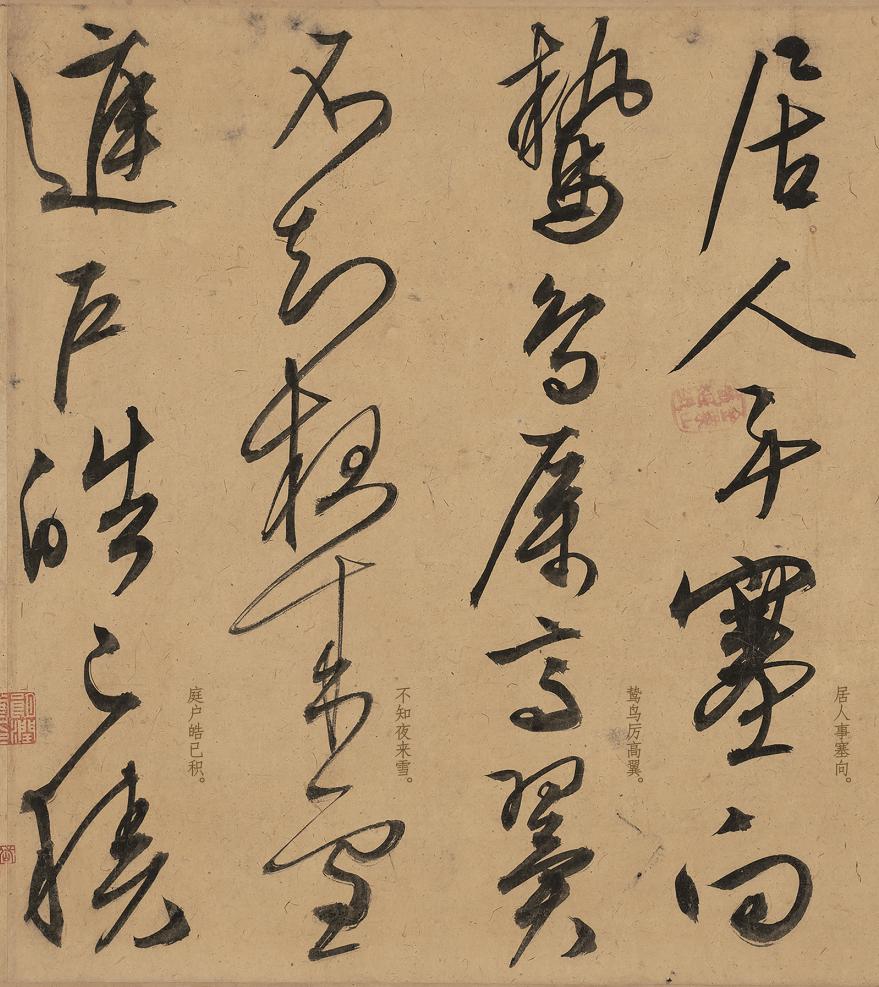 居人事塞向
居人事塞向。
鸷鸟厉高翼
鸷鸟厉高翼。
不知夜来雪
不知夜来雪。
庭户皓已积
庭户皓已积。